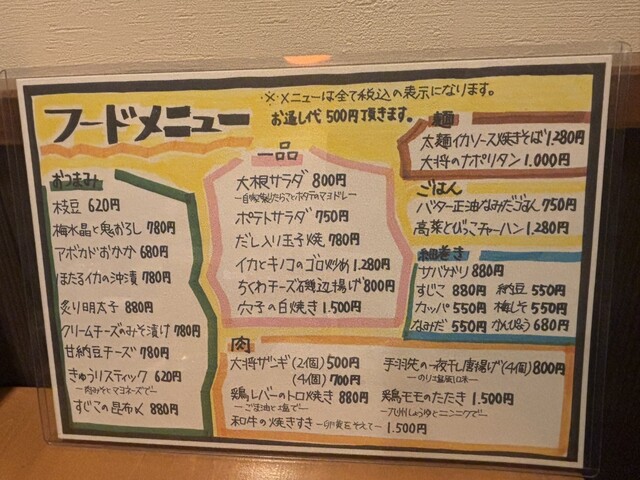 フードメニュー
※メニューは全て税込の表示になります。
お通し代 500円頂きます。
おつまみ
枝豆 620円
梅水晶と鬼おろし 780円
アボカドおかか 680円
ほたるイカの沖漬 780円
炙り明太子 880円
クリームチーズのみそ漬け 780円
甘納豆チーズ 780円
きゅうりスティック 620円
ー肉みそとマヨネーズでー
すじこの昆布〆 880円
一品
大根サラダ 800円
ー自家製たらことポテのマヨドレー
ポテトサラダ 750円
だし入り玉子焼 780円
イカとキノコのゴロ炒め 1.280円
ちくわチーズ磯辺揚げ 800円
穴子の白焼き 1.500円
肉
大将ザンギ(2個) 500円
(4個) 700円
鶏レバーのトロ焼き 880円
ーごま油と塩でー
和牛の焼きすき ー卵黄をそえてー 1.500円
手羽先の一夜干し唐揚げ(4個) 800円
ーのり塩風味ー
鶏モモのたたき 1.500円
ー九州しょうゆとニンニクでー
麺
太麺イカソース焼きそば 1.280円
大将のナポリタン 1.000円
ごはん
バター正油なみだごはん 750円
高菜とびっこチャーハン 1.280円
細巻き
サバガリ 880円
すじこ 880円 納豆 550円
カッパ 550円 梅しそ 550円
なみだ 550円 かんぴょう 680円